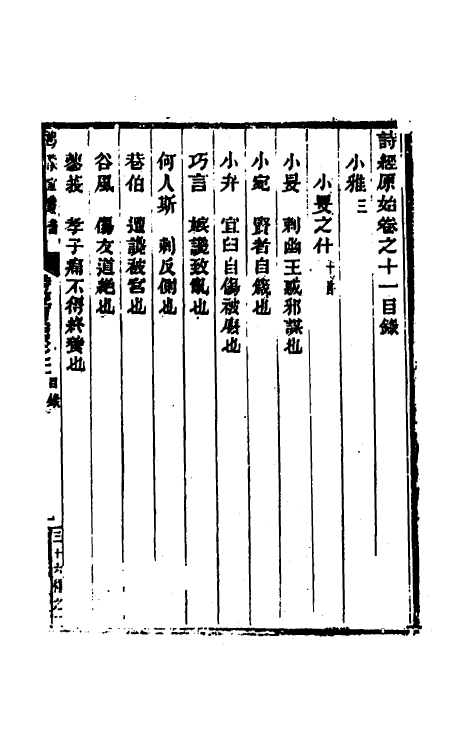 詩經原始卷之十一目錄
小雅三
小旻之什
小旻 刺幽王惑邪謀也
小宛 賢者自箴也
小弁 宜臼自傷被廢也
巧言 嫉讒致亂也
何人斯 刺反側也
巷伯 遭讒被宮也
谷風 傷友道絶也
蓼莪 孝子痛不得終養也
目錄
三十六種之一